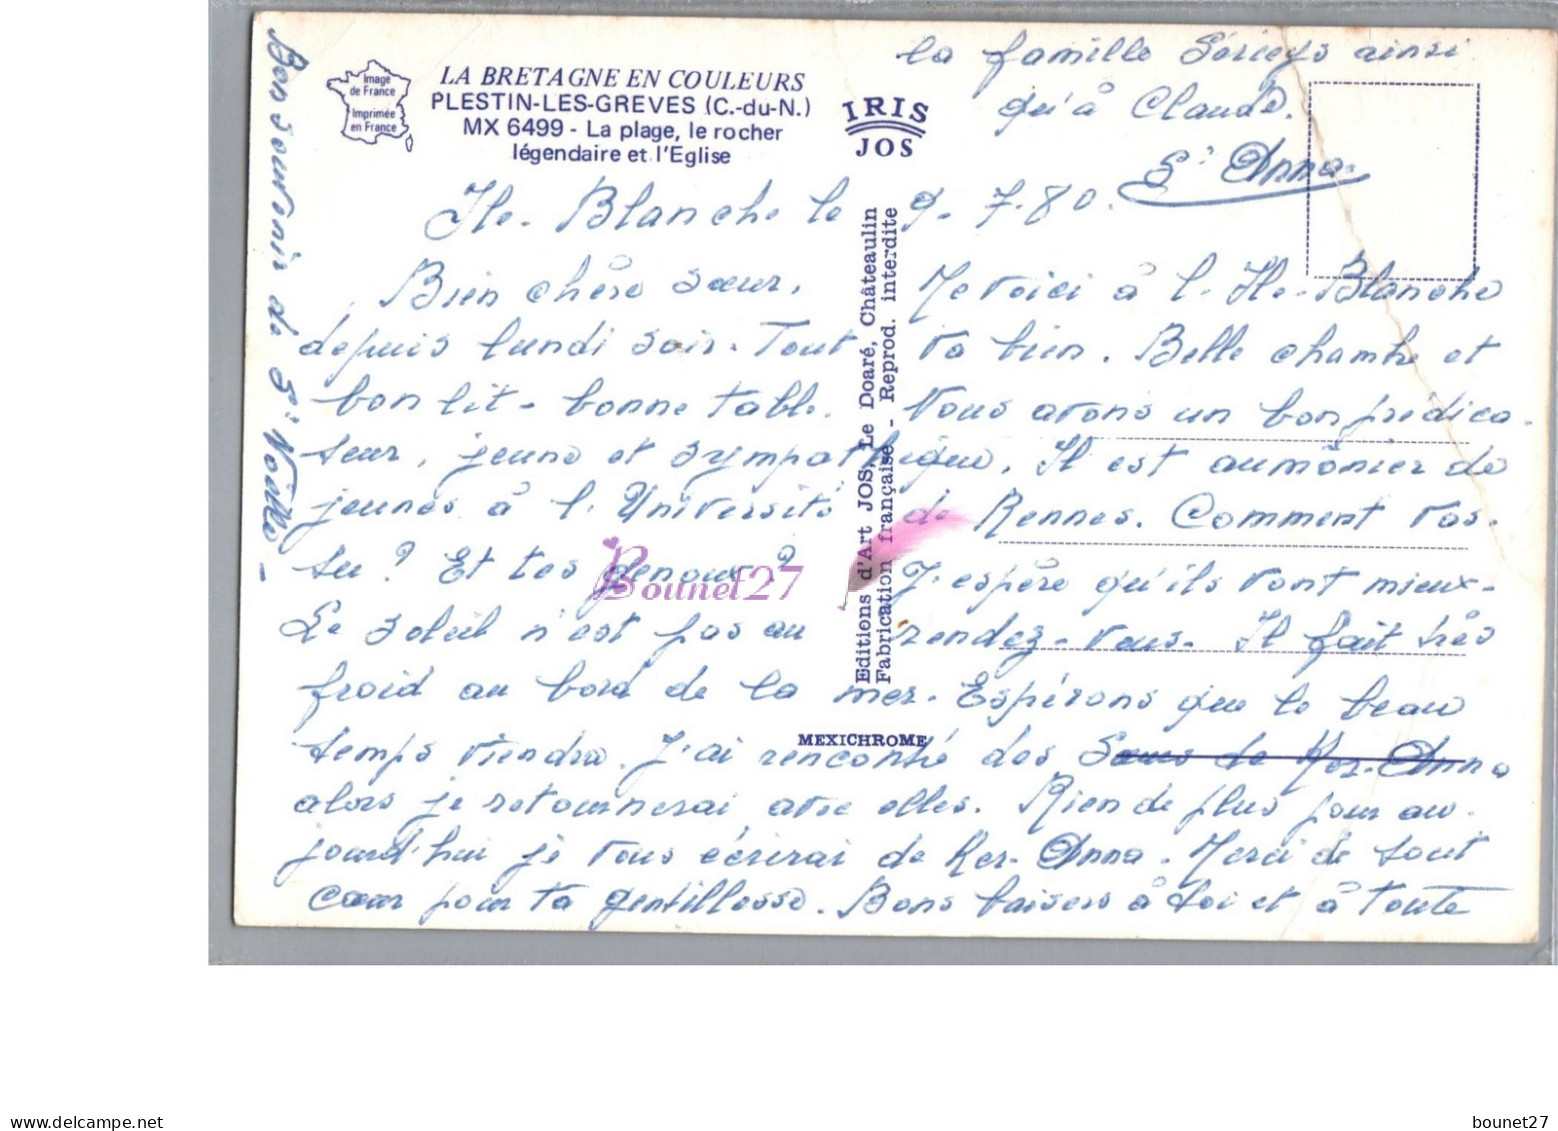 Image
de France
Imprimée
en France
LA BRETAGNE EN COULEURS
PLESTIN-LES-GREVES (C.-du-N.)
MX 6499 - La plage, le rocher
légendaire et l'Eglise
IRIS
JOS
Ile-Blanche le 9.7.80.
Bien chère sœur, Me voici à l'Ile-Blanche
depuis lundi soir. Tout va bien. Belle chambre et
bon lit - bonne table. Nous avons un bon prédica-
teur, jeune et sympathique. Il est aumônier de
jeunes à l'Université de Rennes. Comment vas-
tu ? Et tes genoux ? J'espère qu'ils vont mieux.
Le soleil n'est pas au rendez-vous. Il fait très
froid au bord de la mer. Espérons que le beau
temps viendra. J'ai rencontré des Sœurs de Ker-Anna
alors je retournerai avec elles. Rien de plus pour au-
jourd'hui je vous écrirai de Ker-Anna. Merci de tout
cœur pour ta gentillesse. Bons baisers à toi et à toute
la famille ainsi
qu'à Claude.
Sr Anna.
Bon souvenir de Sr Noëlle -
Editions d'Art JOS, Le Doaré, Châteaulin
Fabrication française - Reprod. interdite
MEXICHROME
Bounet27
bounet27
delcampe.net